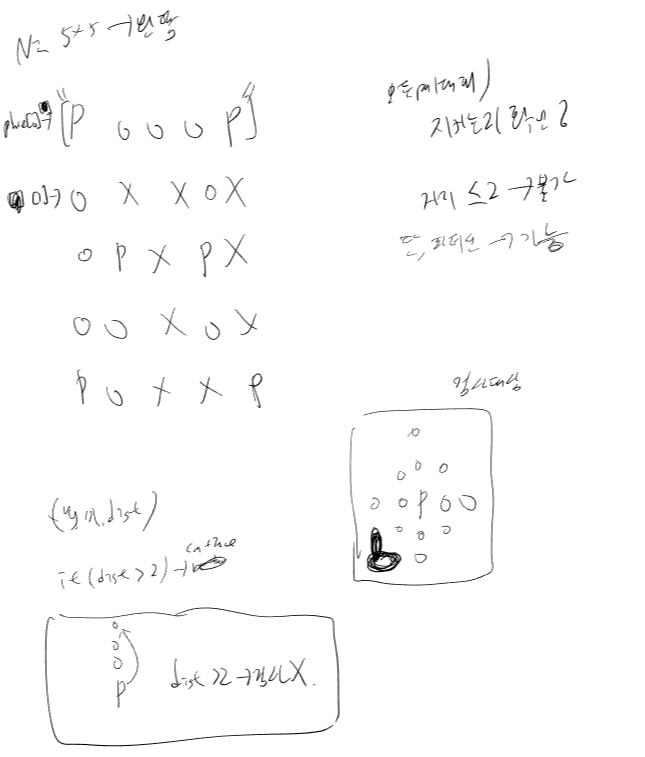 N= 5*5 → 
"[P O O O P]"
O X X O X
O P X P X
O O X O X
P O X X P
거리 ≤2 → 불가
단, 파티션 → 가능
검사대상
O
O O O
O O P O O
O O O
O
(y, x, dist)
if (dist > 2) → continue
O
O
O
P dist >2 → 검사X.